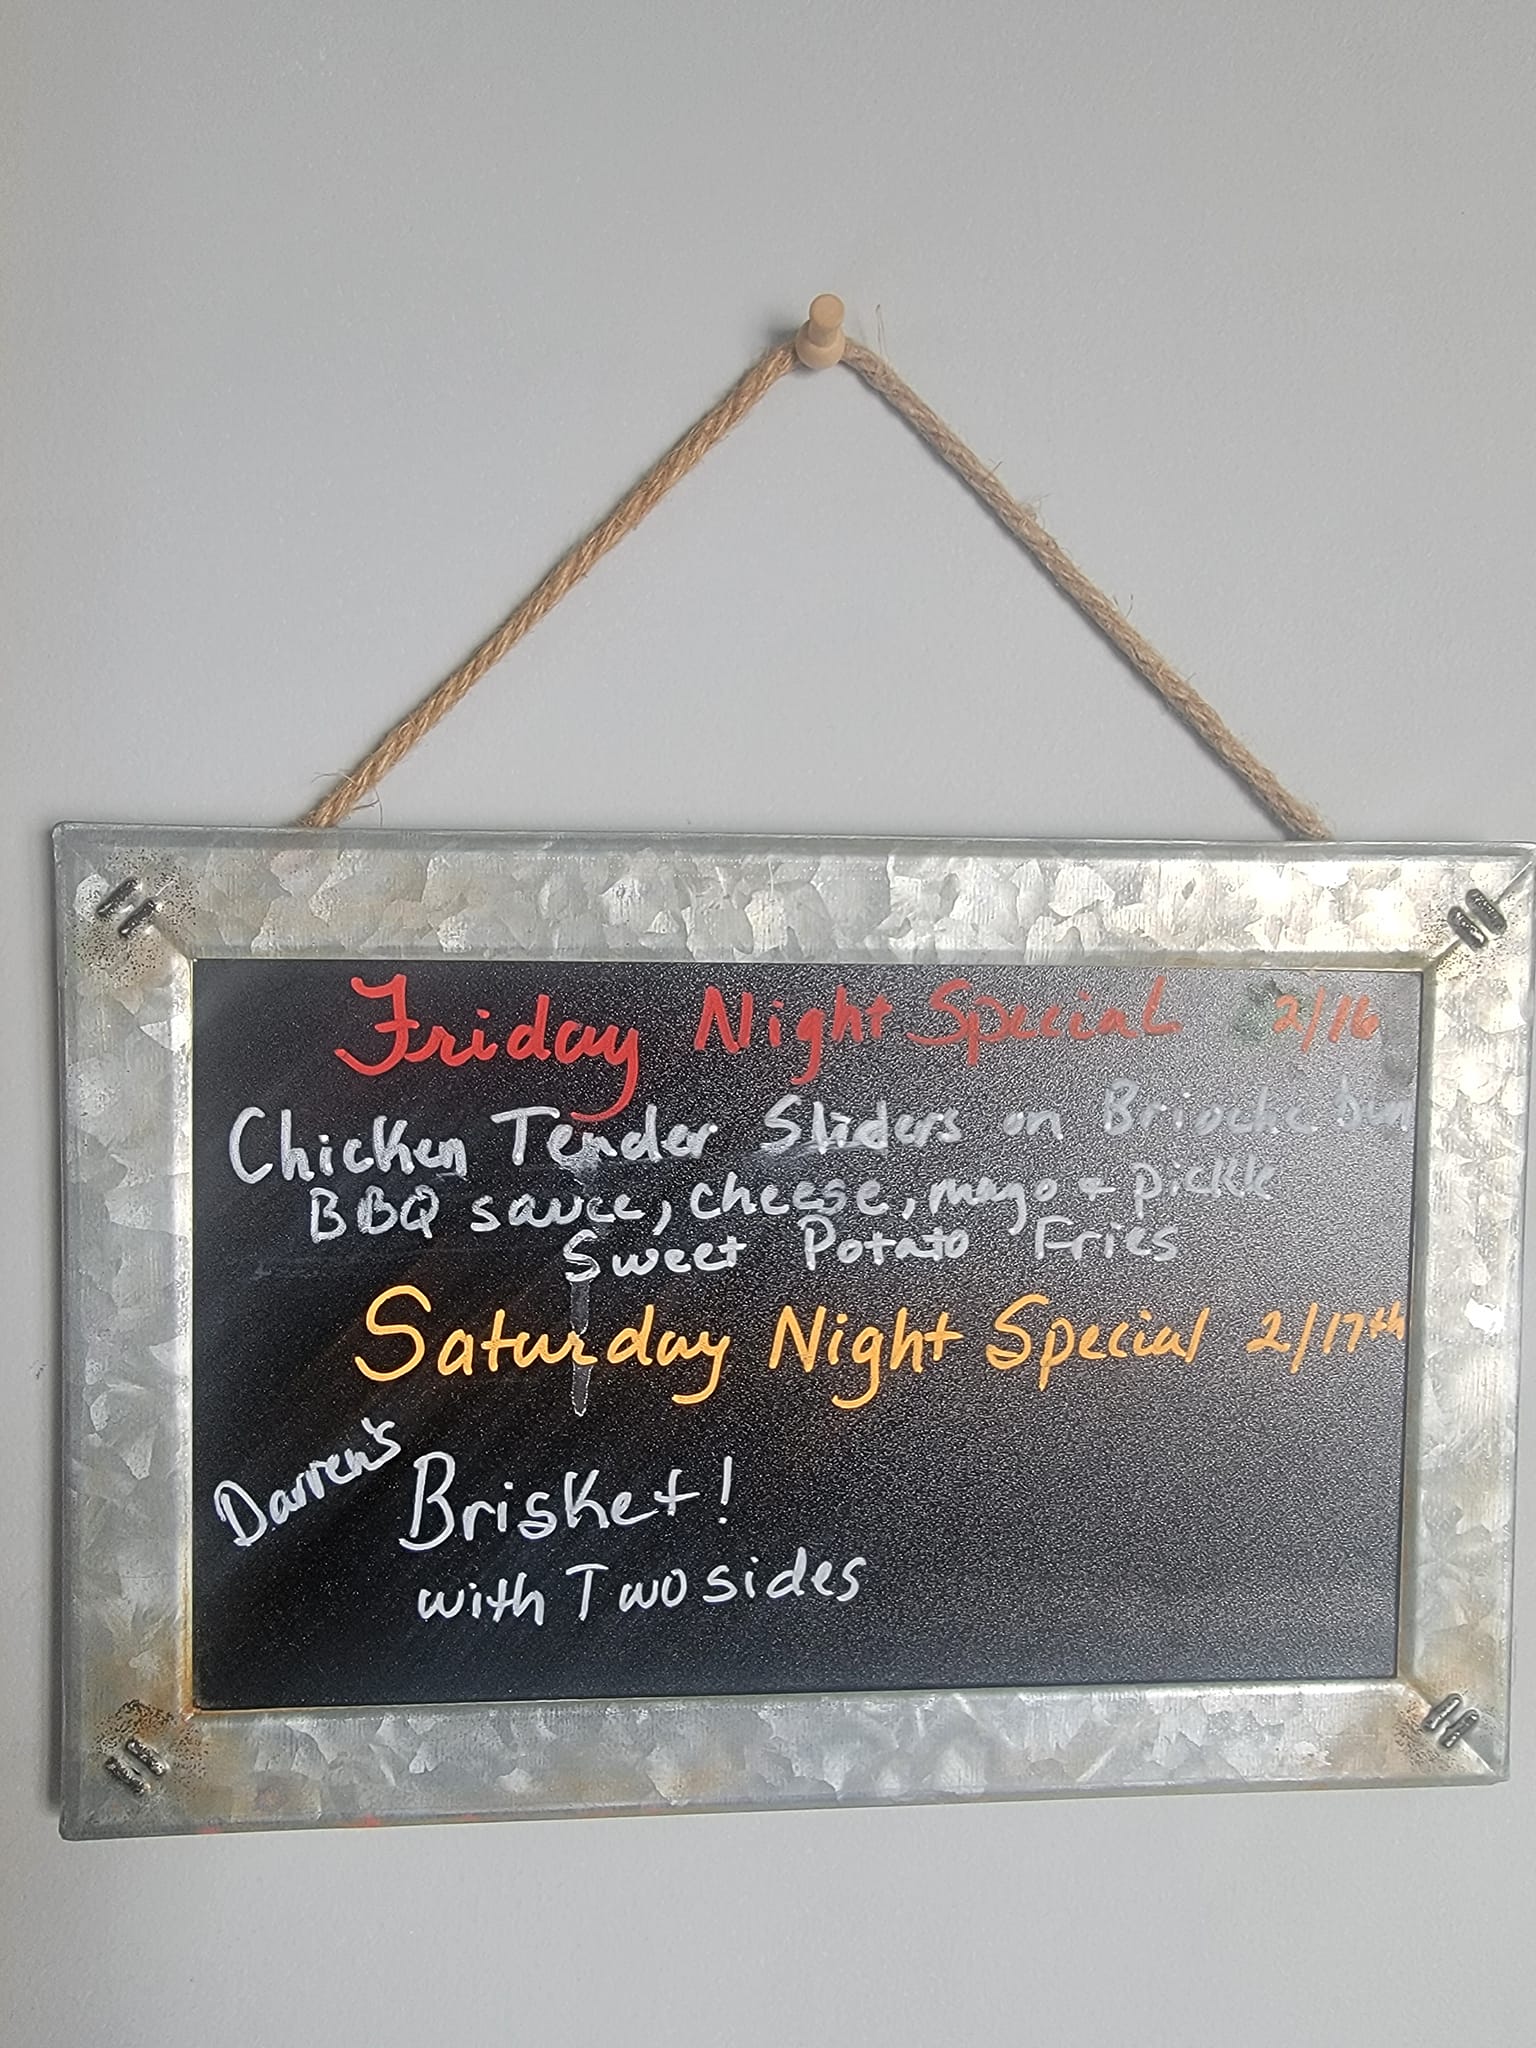 Friday Night Special 2/16
Chicken Tender Sliders on Brioche bun
BBQ sauce, cheese, mayo + pickle
Sweet Potato Fries
Saturday Night Special 2/17th
Darren's
Brisket!
with Two sides